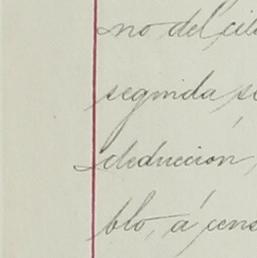 no del cit
segnida se
deduccion,
blo, á cens